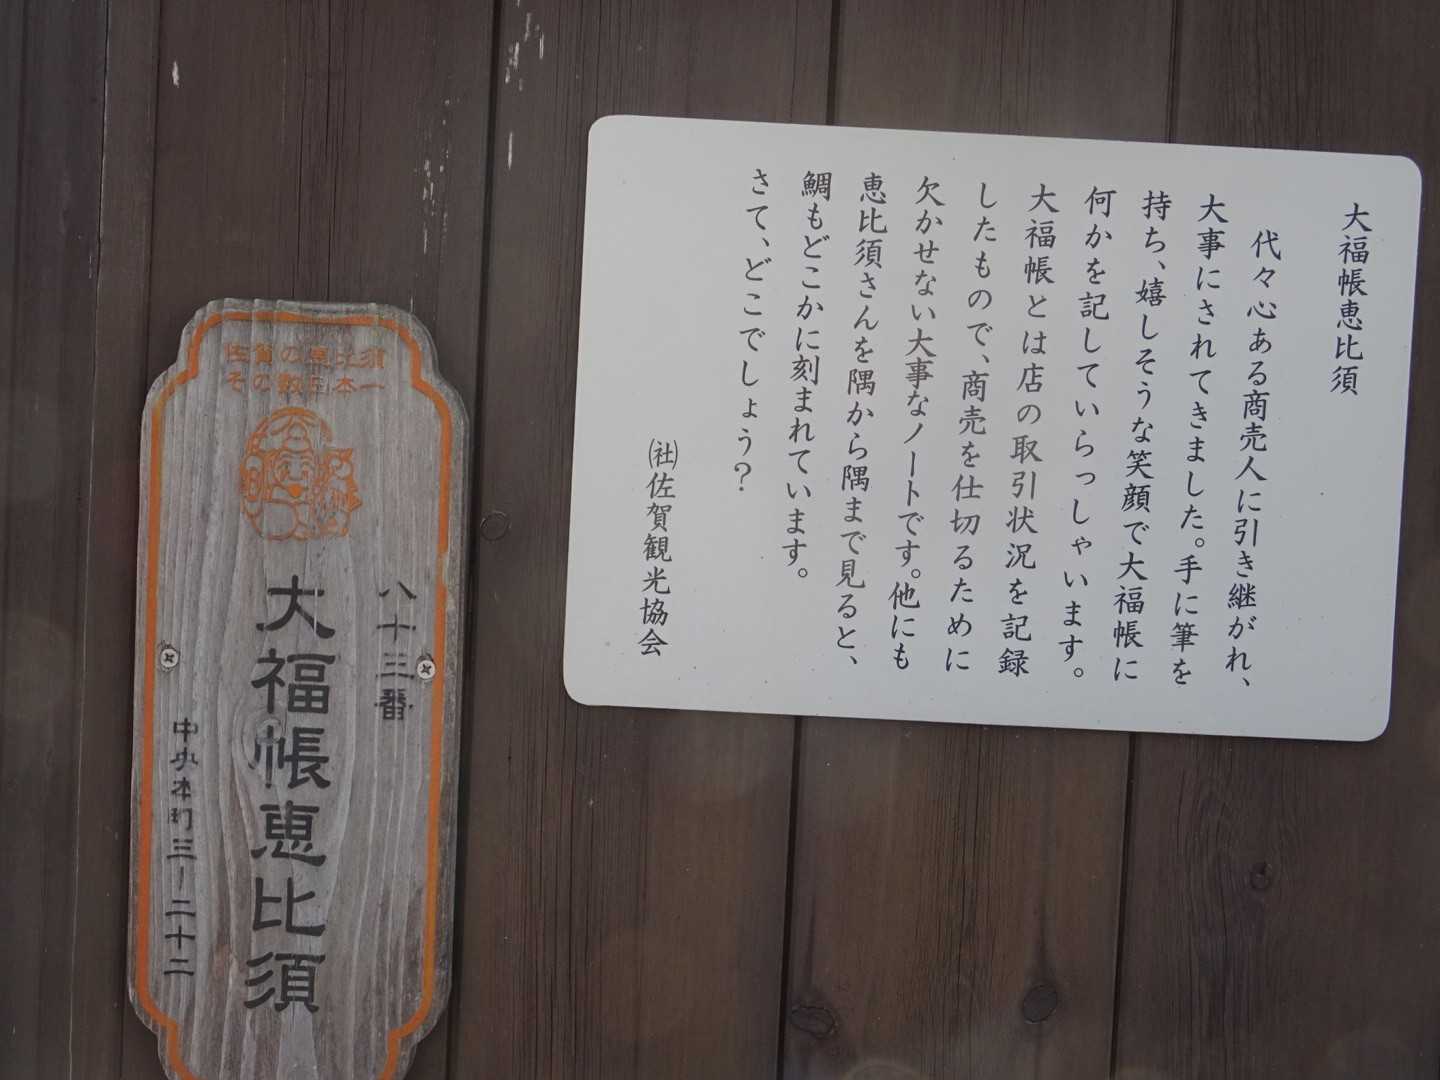 大福帳恵比須
代々心ある商売人に引き継がれ、
大事にされてきました。手に筆を
持ち、嬉しそうな笑顔で大福帳に
何かを記していらっしゃいます。
大福帳とは店の取引状況を記録
したもので、商売を仕切るために
欠かせない大事なノートです。他にも
恵比須さんを隅から隅まで見ると、
鯛もどこかに刻まれています。
さて、どこでしょう?
(社)佐賀観光協会
佐賀の恵比須
その数日本一
八十三番
大福帳恵比須
中央本町三ー二十二